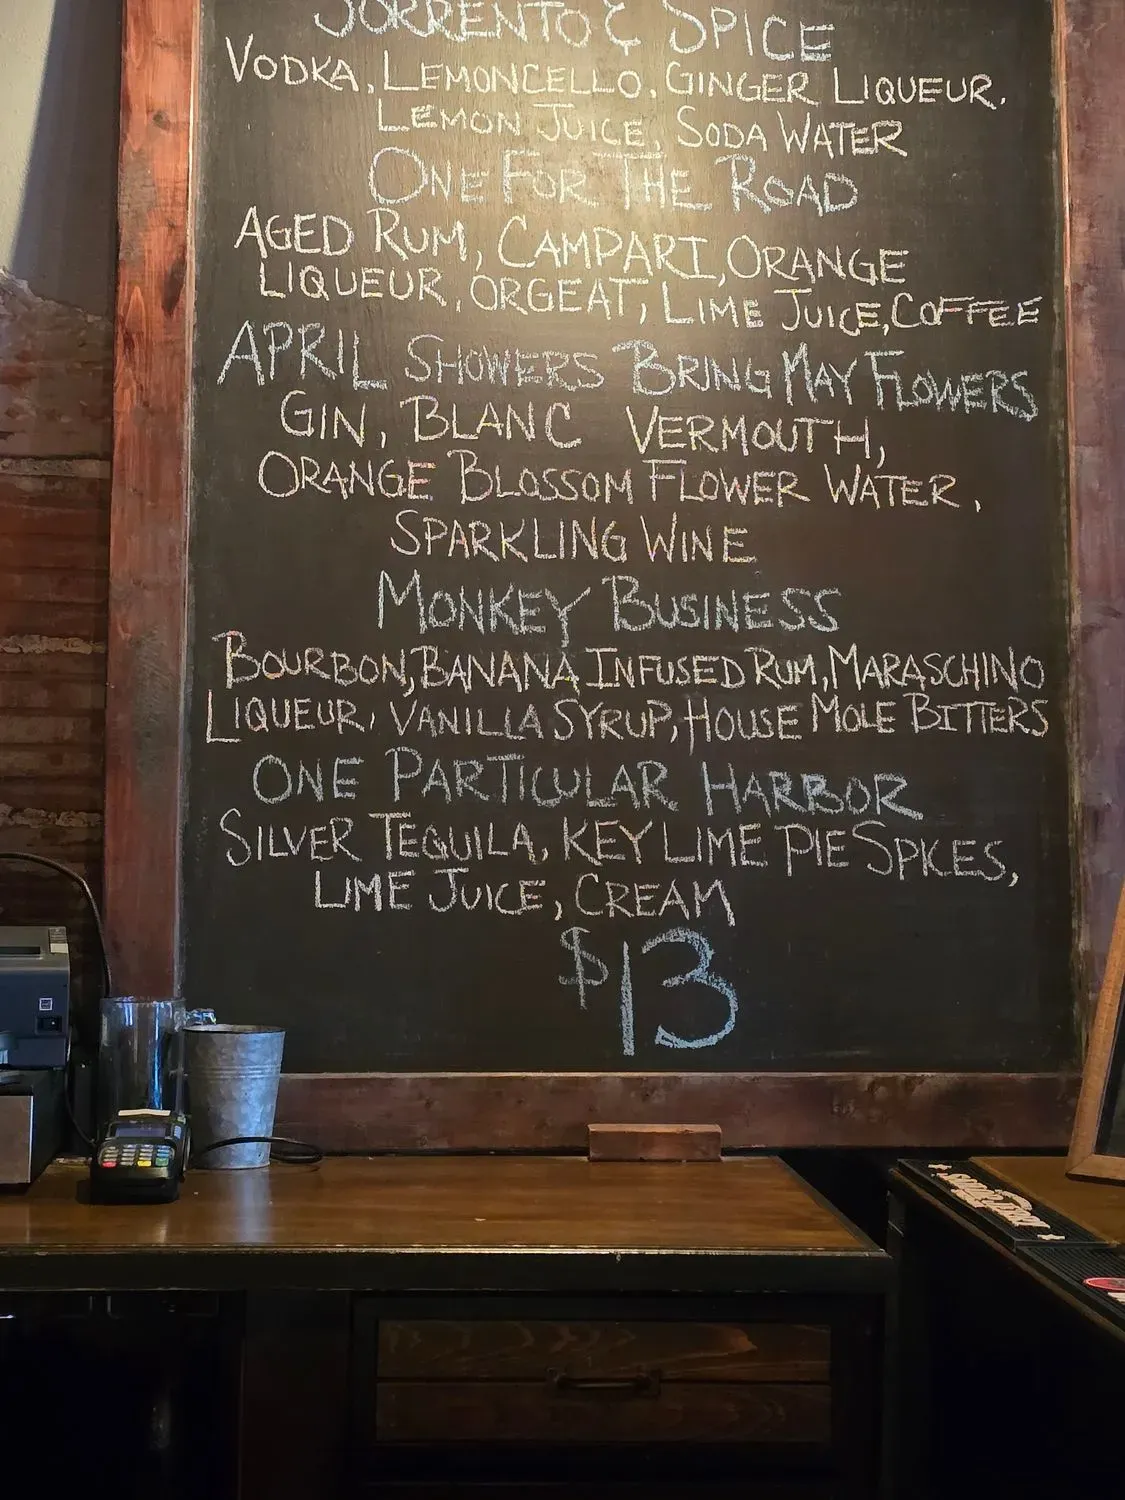 SORRENTO & SPICE
VODKA, LEMONCELLO, GINGER LIQUEUR,
LEMON JUICE, SODA WATER
ONE FOR THE ROAD
AGED RUM, CAMPARI, ORANGE
LIQUEUR, ORGEAT, LIME JUICE, COFFEE
APRIL SHOWERS BRING MAY FLOWERS
GIN, BLANC VERMOUTH,
ORANGE BLOSSOM FLOWER WATER,
SPARKLING WINE
MONKEY BUSINESS
BOURBON, BANANA INFUSED RUM, MARASCHINO
LIQUEUR, VANILLA SYRUP, HOUSE MOLE BITTERS
ONE PARTICULAR HARBOR
SILVER TEQUILA, KEY LIME PIE SPICES,
LIME JUICE, CREAM
$13